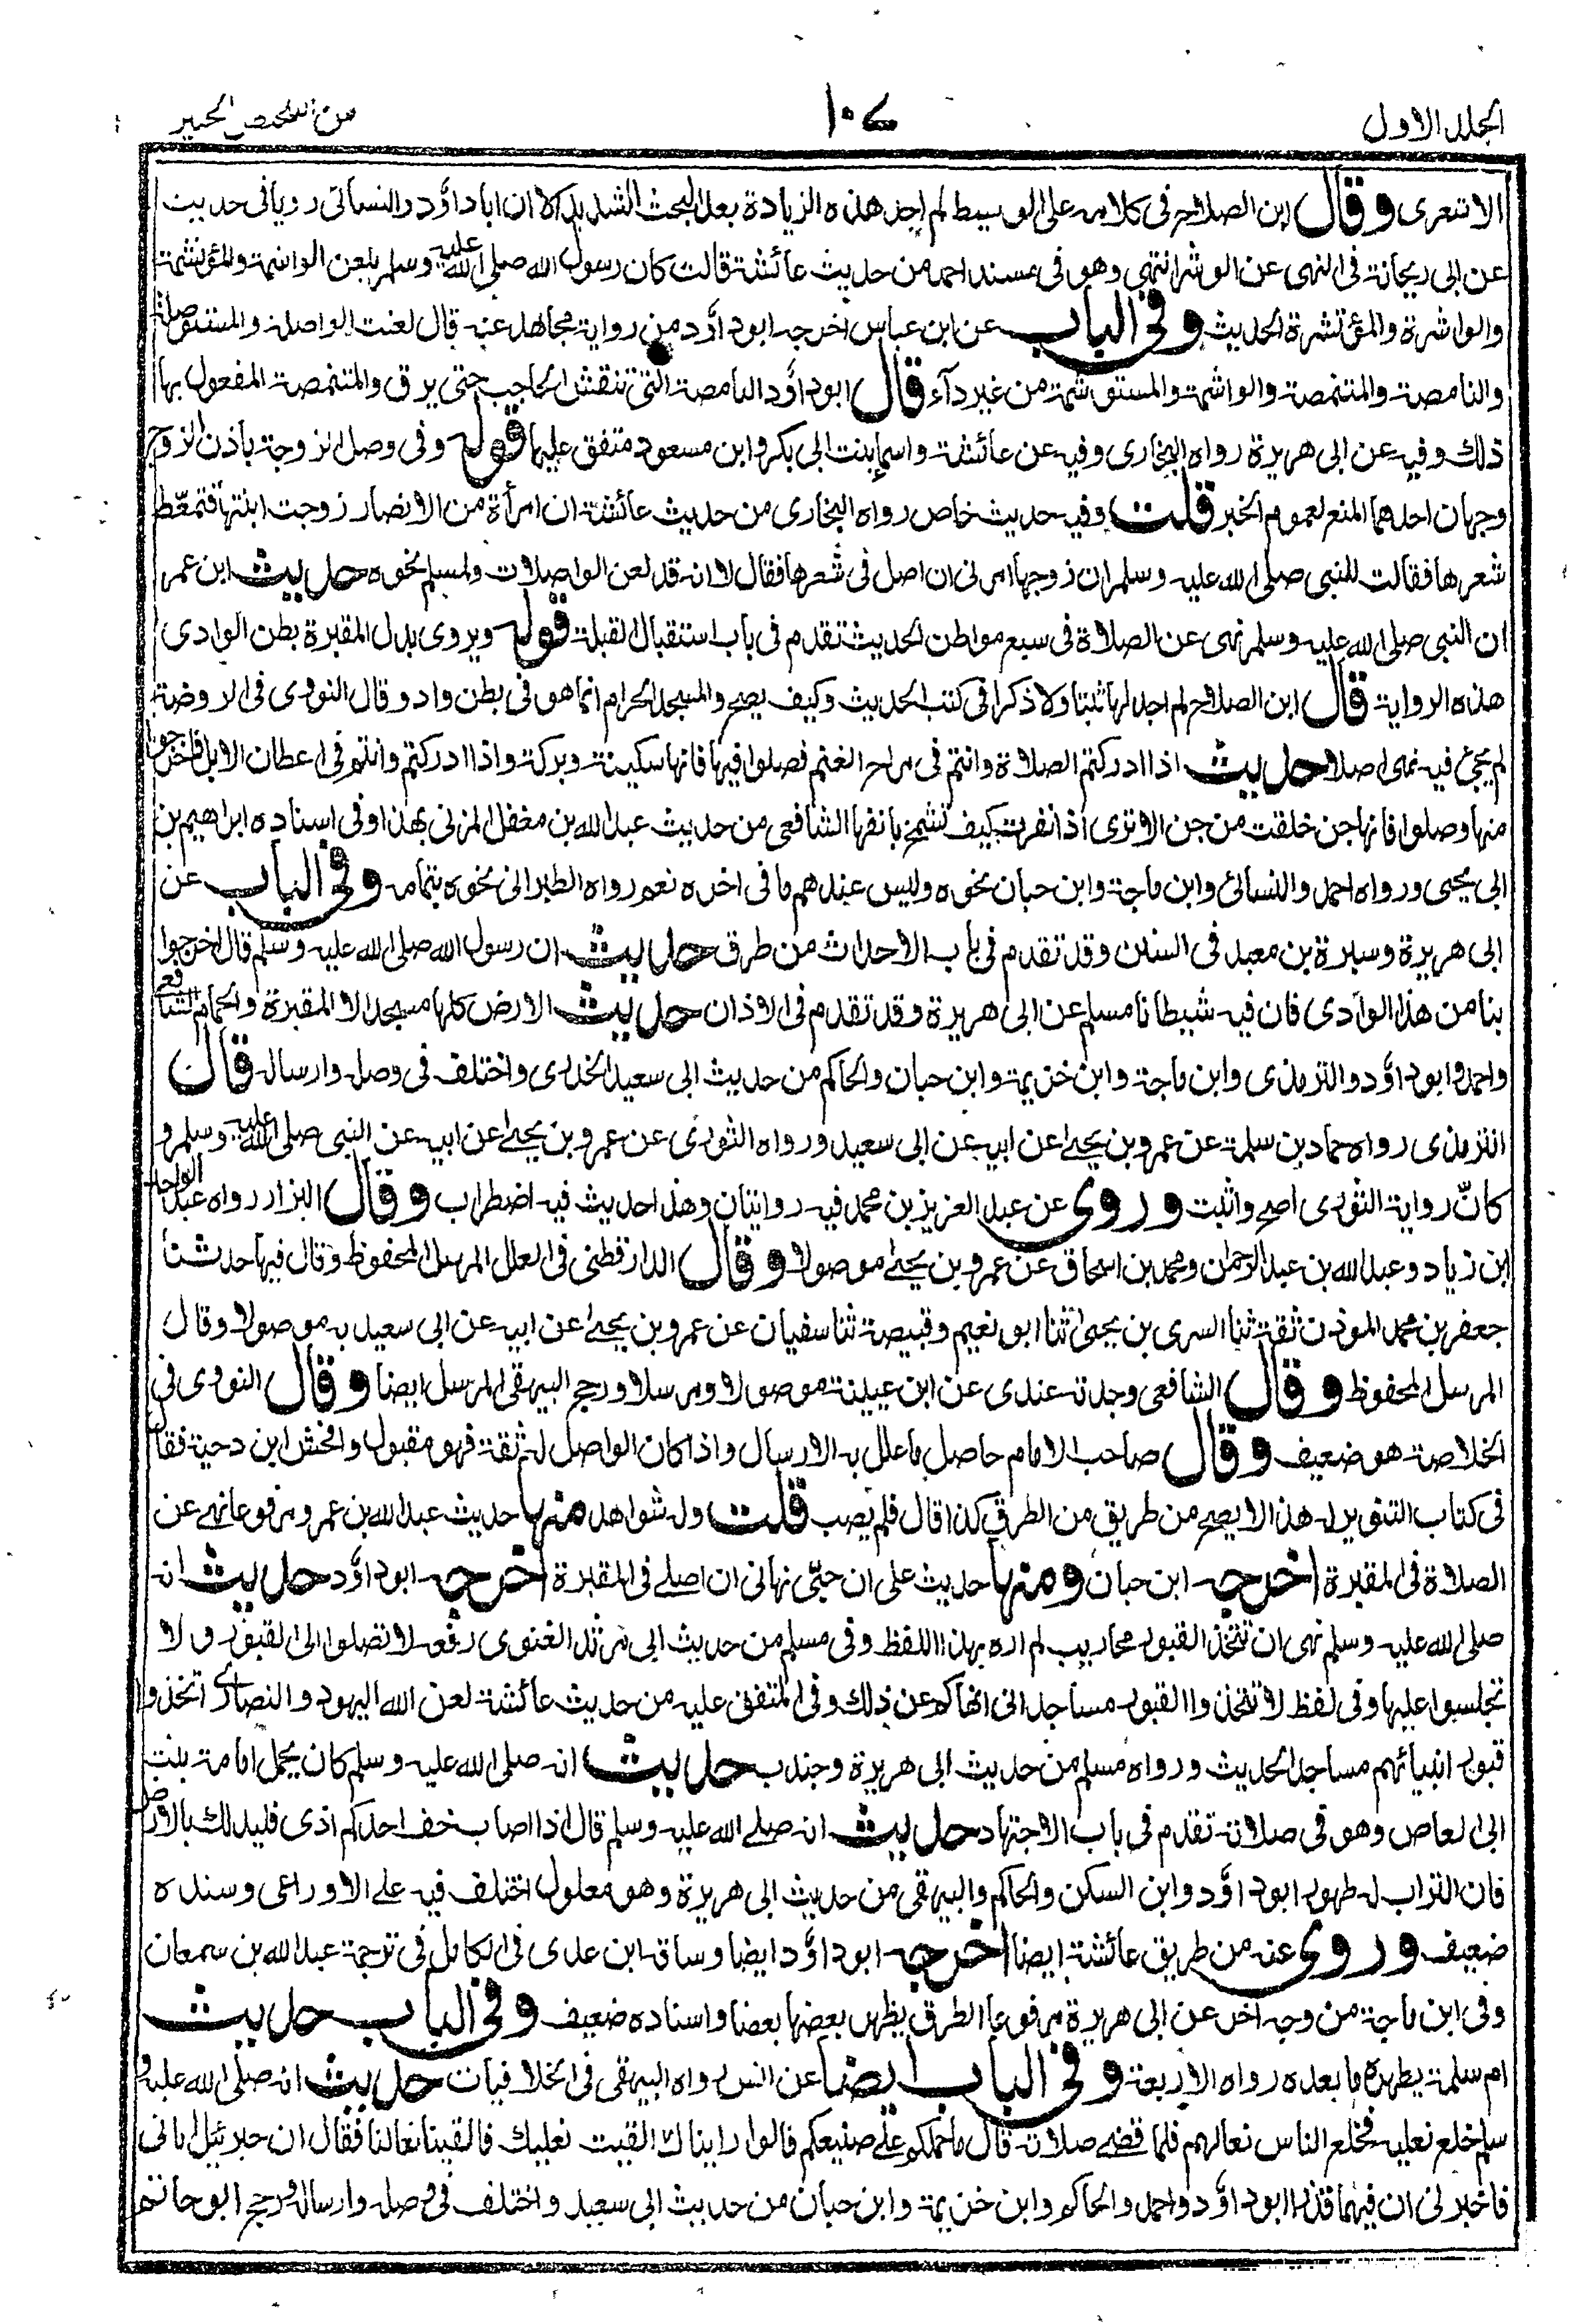 الجلد الاول
١٠٧
من التلخيص الحبير
الاشعرى وقال ابن الصلاح فى كلامه على الوسيط لم اجد هذه الزيادة بعد البحث الشديد الا ان ابا داؤد والنسائى رويا فى حديث
عن ابى ريحانة فى النهى عن الوشر انتهى وهو فى مسند احمد من حديث عائشة قالت كان رسول الله صلى الله عليه وسلم يلعن الواشمة والمؤتشمة
والواشرة والمؤتشرة الحديث وفى الباب عن ابن عباس اخرجه ابوداؤد من رواية مجاهد عنه قال لعنت الواصلة والمستوصلة
والنامصة والمتنمصة والواشمة والمستوشمة من غير دآء قال ابوداؤد النامصة التى تنقش الحاجب حتى يرق والمتنمصة المفعول بها
ذلك وفيه عن ابى هريرة رواه البخارى وفيه عن عائشة واسماء بنت ابى بكر وابن مسعود متفق عليها قوله وفى وصل الزوجة باذن الزوج
وجهان احدهما المنع لعموم الخبر قلت وفيه حديث خاص رواه البخارى من حديث عائشة ان امرأة من الانصار زوجت ابنتها فتمعّط
شعرها فقالت للنبى صلى الله عليه وسلم ان زوجها امرنى ان اصل فى شعرها فقال لا انه قد لعن الواصلات ولمسلم نحوه حديث ابن عمر
ان النبى صلى الله عليه وسلم نهى عن الصلاة فى سبع مواطن الحديث تقدم فى باب استقبال القبلة قوله ويروى بدل المقبرة بطن الوادى
هذه الرواية قال ابن الصلاح لم اجد لها ثبتا ولا ذكرا فى كتب الحديث وكيف يصح والمسجد الحرام انما هو فى بطن واد وقال النووى فى الروضة
لم يجئ فيه نهى اصلا حديث اذا ادركتم الصلاة وانتم فى مراح الغنم فصلوا فيها فانها سكينة وبركة واذا ادركتم وانتم فى اعطان الابل فاخرجوا
منها وصلوا فانها جن خلقت من جن الا ترى اذا نفرت كيف تشمخ بانفها الشافعى من حديث عبد الله بن مغفل المزنى بهذا وفى اسناده ابراهيم بن
ابى يحيى ورواه احمد والنسائى وابن ماجة وابن حبان نحوه وليس عندهم ما فى اخره نعم رواه الطبرانى نحوه بتمامه وفى الباب عن
ابى هريرة وسبرة بن معبد فى السنن وقد تقدم فى باب الاحداث من طرق حديث ان رسول الله صلى الله عليه وسلم قال اخرجوا
بنا من هذا الوادى فان فيه شيطانا مسلم عن ابى هريرة وقد تقدم فى الاذان حديث الارض كلها مسجد الا المقبرة والحمام الشافعى
واحمد وابوداؤد والترمذى وابن ماجة وابن خزيمة وابن حبان والحاكم من حديث ابى سعيد الخدرى واختلف فى وصله وارساله قال
الترمذى رواه حماد بن سلمة عن عمرو بن يحيى عن ابيه عن ابى سعيد ورواه الثورى عن عمرو بن يحيى عن ابيه عن النبى صلى الله عليه وسلم و
كانّ رواية الثورى اصح واثبت وروى عن عبد العزيز بن محمد فيه روايتان وهذا حديث فيه اضطراب وقال البزار رواه عبد الواحد
ابن زياد وعبد الله بن عبد الرحمان ومحمد بن اسحاق عن عمرو بن يحيى موصولا وقال الدارقطنى فى العلل المرسل المحفوظ وقال فيها حدثنا
جعفر بن محمد المؤذن ثقة ثنا السرى بن يحيى ثنا ابو نعيم وقبيصة ثنا سفيان عن عمرو بن يحيى عن ابيه عن ابى سعيد به موصولا وقال
المرسل المحفوظ وقال الشافعى وجدته عندى عن ابن عيينة موصولا ومرسلا ورجح البيهقى المرسل ايضا وقال النووى فى
الخلاصة هو ضعيف وقال صاحب الامام حاصل ما علل به الارسال واذا كان الواصل له ثقة فهو مقبول وافحش ابن دحية فقال
فى كتاب التنوير له هذا لا يصح من طريق من الطرق كذا قال فلم يصب قلت وله شواهد منها حديث عبد الله بن عمرو مرفوعا نهى عن
الصلاة فى المقبرة اخرجه ابن حبان ومنها حديث على ان حبّى نهانى ان اصلى فى المقبرة اخرجه ابوداؤد حديث انه
صلى الله عليه وسلم نهى ان تتخذ القبور محاريب لم اره بهذا اللفظ وفى مسلم من حديث ابى مرثد الغنوى رفعه لا تصلوا الى القبور ولا
تجلسوا عليها وفى لفظ لا تتخذوا القبور مساجد انى انهاكم عن ذلك وفى المتفق عليه من حديث عائشة لعن الله اليهود والنصارى اتخذوا
قبور انبيائهم مساجد الحديث ورواه مسلم من حديث ابى هريرة وجندب حديث انه صلى الله عليه وسلم كان يحمل امامة بنت
ابى العاص وهو فى صلاته تقدم فى باب الاجتهاد حديث انه صلى الله عليه وسلم قال اذا اصاب خف احدكم اذى فليدلك بالارض
فان التراب له طهور ابوداؤد وابن السكن والحاكم والبيهقى من حديث ابى هريرة وهو معلول اختلف فيه على الاوزاعى وسنده
ضعيف وروى عنه من طريق عائشة ايضا اخرجه ابوداؤد ايضا وساقه ابن عدى فى الكامل فى ترجمة عبد الله بن سمعان
وفى ابن ماجة من وجه اخر عن ابى هريرة مرفوعا الطرق يطهر بعضها بعضا واسناده ضعيف وفى الباب حديث
ام سلمة يطهره ما بعده رواه الاربعة وفى الباب ايضا عن انس رواه البيهقى فى الخلافيات حديث انه صلى الله عليه و
سلم خلع نعليه فخلع الناس نعالهم فلما قضى صلاته قال ما حملكم على صنيعكم قالوا رايناك القيت نعليك فالقينا نعالنا فقال ان جبرئيل اتانى
فاخبرنى ان فيهما قذرا ابوداؤد واحمد والحاكم وابن خزيمة وابن حبان من حديث ابى سعيد واختلف فى وصله وارساله ورجح ابو حاتم